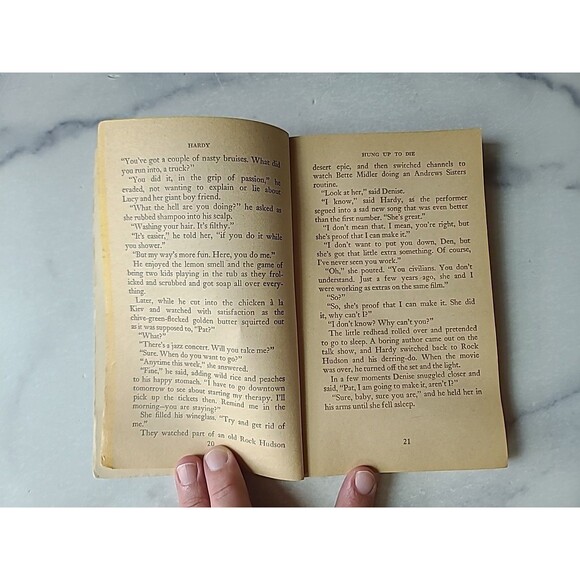 HARDY
"You've got a couple of nasty bruises. What did
you run into, a truck?"
"You did it, in the grip of passion," he
evaded, not wanting to explain or lie about
Lucy and her giant boy friend.
"What the hell are you doing?" he asked as
she rubbed shampoo into his scalp.
"Washing your hair. It's filthy."
"It's easier," he told her, "if you do it while
you shower."
"But my way's more fun. Here, you do me."
He enjoyed the lemon smell and the game of
being two kids playing in the tub as they frol-
icked and scrubbed and got soap all over every-
thing.
Later, while he cut into the chicken à la
Kiev and watched with satisfaction as the
chive-green-flecked golden butter squirted out
as it was supposed to, "Pat?"
"What?"
"There's a jazz concert. Will you take me?"
"Sure. When do you want to go?"
"Anytime this week," she answered.
"Fine," he said, adding wild rice and peaches
to his happy stomach. "I have to go downtown
tomorrow to see about starting my therapy. I'll
pick up the tickets then. Remind me in the
morning—you are staying?"
She filled his wineglass. "Try and get rid of
me."
They watched part of an old Rock Hudson
20
HUNG UP TO DIE
desert epic, and then switched channels to
watch Bette Midler doing an Andrews Sisters
routine.
"Look at her," said Denise.
"I know," said Hardy, as the performer
segued into a sad new song that was even better
than the first number. "She's great."
"I don't mean that. I mean, you're right, but
she's proof that I can make it."
"I don't want to put you down, Den, but
she's got that little extra something. Of course,
I've never seen you work."
"Oh," she pouted. "You civilians. You don't
understand. Just a few years ago, she and I
were working as extras on the same film."
"So?"
"So, she's proof that I can make it. She did
it, why can't I?"
"I don't know? Why can't you?"
The little redhead rolled over and pretended
to go to sleep. A boring author came out on the
talk show, and Hardy switched back to Rock
Hudson and his derring-do. When the movie
was over, he turned off the set and the light.
In a few moments Denise snuggled closer and
said, "Pat, I am going to make it, aren't I?"
"Sure, baby, sure you are," and he held her in
his arms until she fell asleep.
21